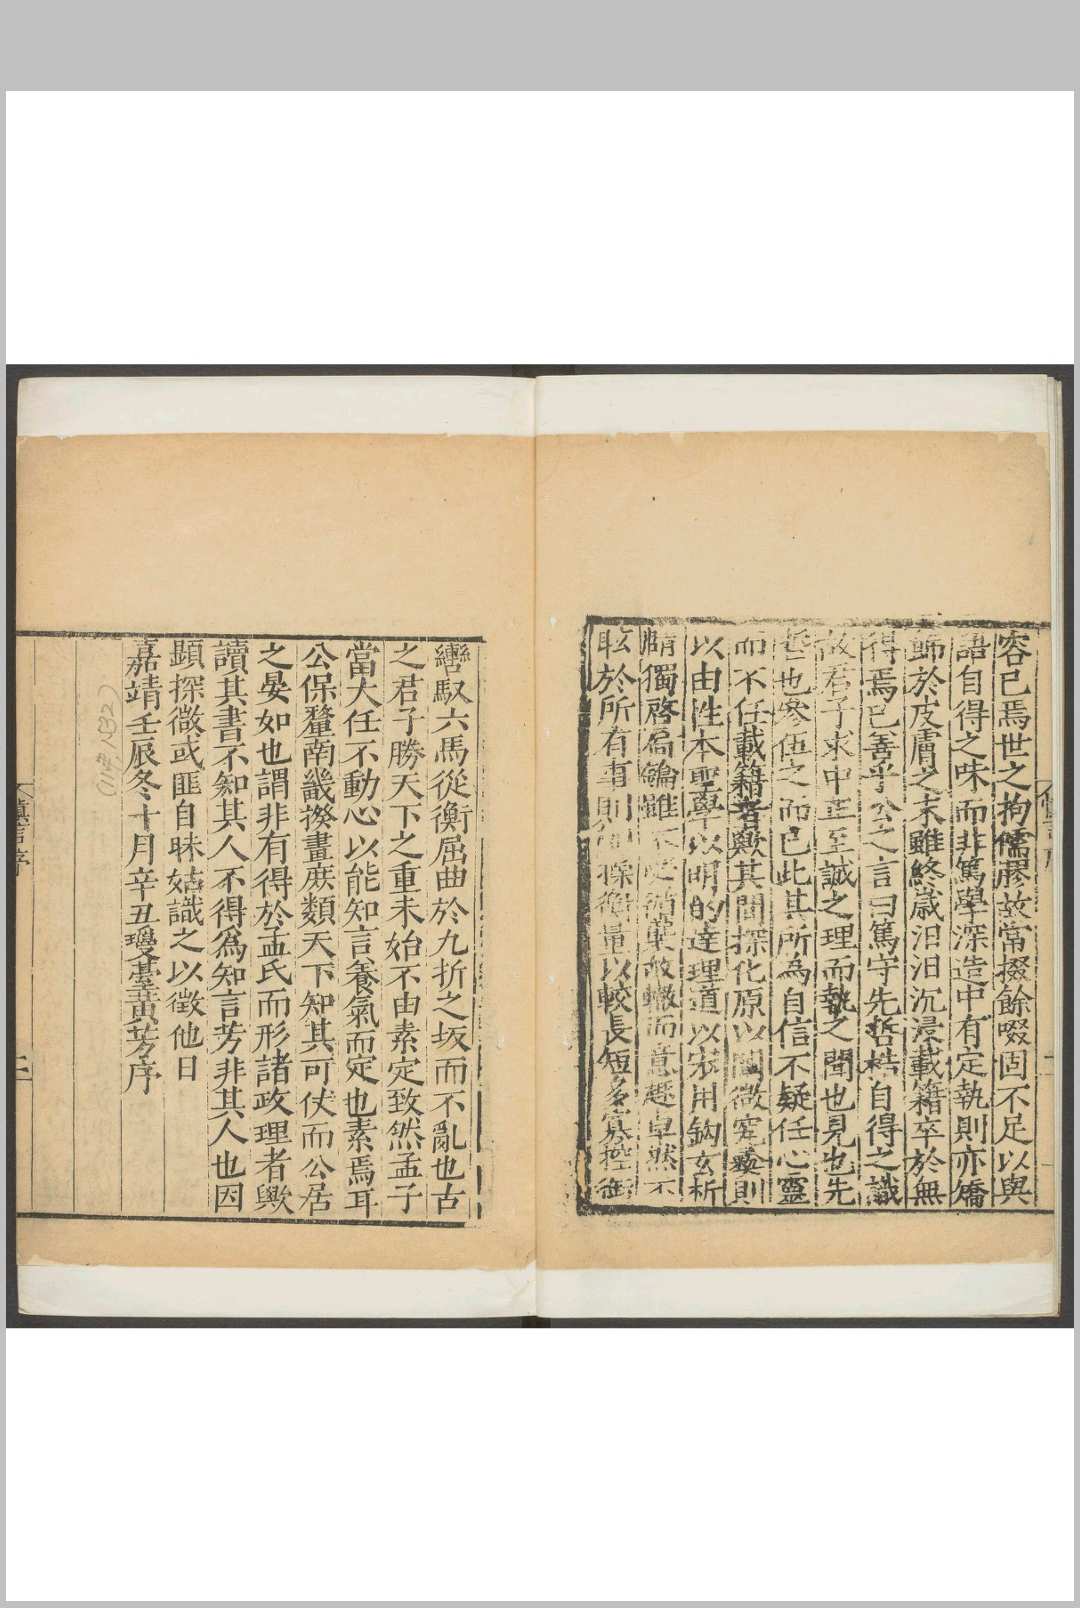 容已焉世之拘儒膠故常掇餘啜固不足以與
語自得之味而非篤學深造中有定執則亦矯
歸於皮膚之末雖終歲汨汨沉浸載籍卒於無
得焉已善乎公之言曰篤守先哲梏自得之識
故君子求中正至誠之理而執之聞也見也先
哲也參伍之而已此其所為自信不疑任心靈
而不任載籍者歟其間探化原以闡微究蘊則
以由性本聖學以明的達理道以宗用鈎玄析
獨啓扃鑰雖不 故轍而意趣卓然不
眩於所有事則 操衡量以較長短多寡控御
轡馭六馬從衡屈曲於九折之坂而不亂也古
之君子勝天下之重未始不由素定致然孟子
當大任不動心以能知言養氣而定也素焉耳
公保釐南畿揆畫庶類天下知其可仗而公居
之晏如也謂非有得於孟氏而形諸政理者歟
讀其書不知其人不得為知言芳非其人也因
顯探微或匪自昧姑識之以徵他日
嘉靖壬辰冬十月辛丑瓊臺黃芳序
慎言序
二